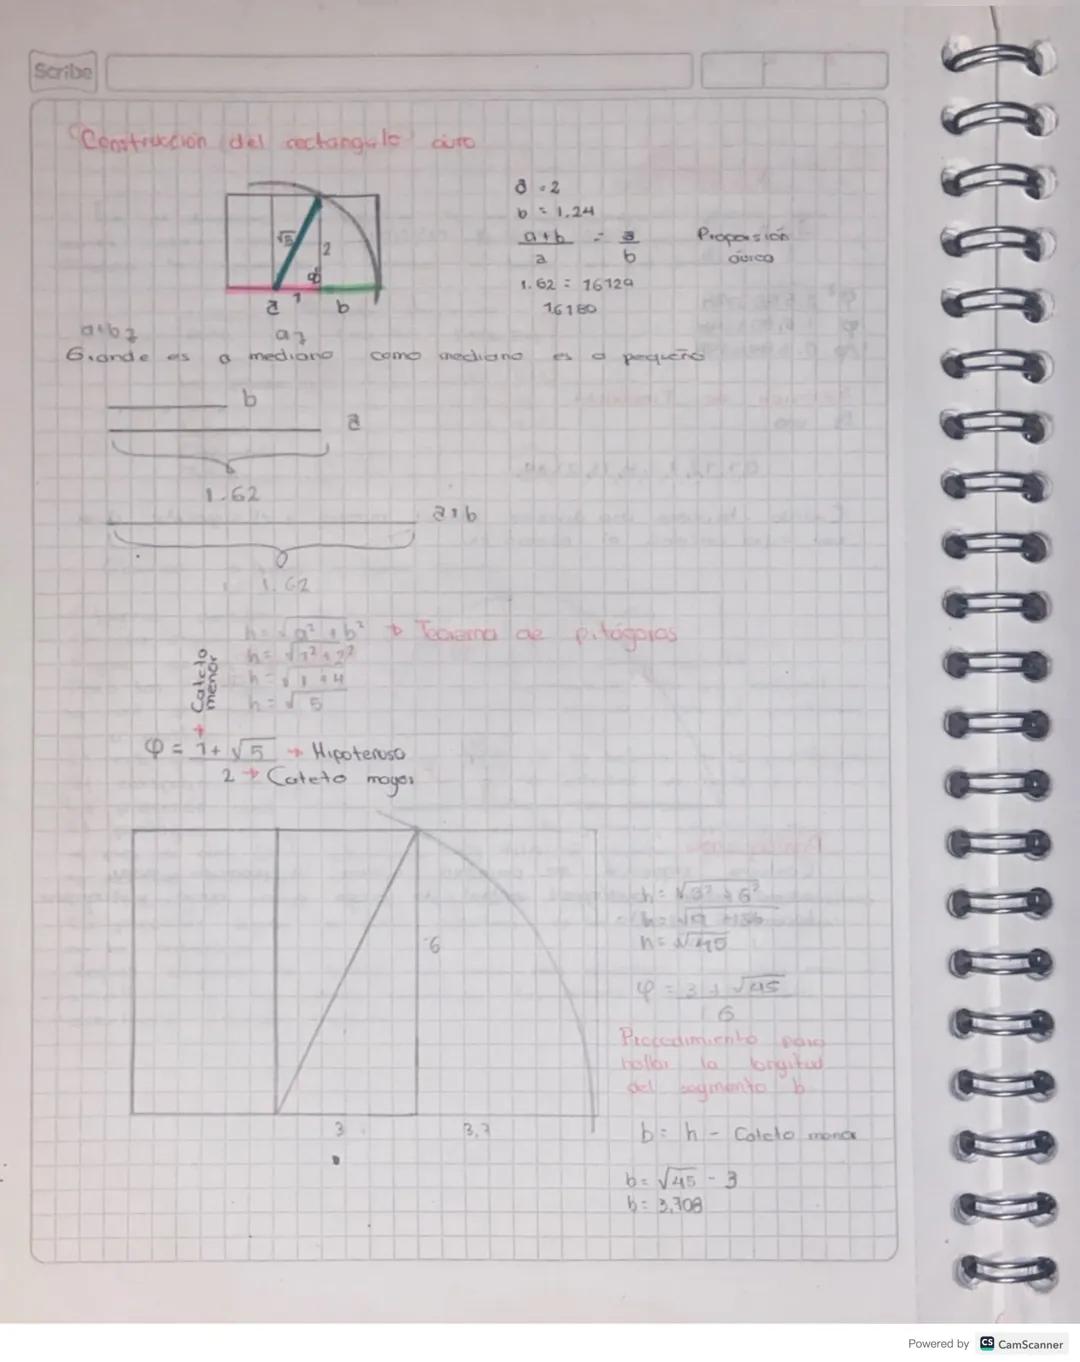 Scribe
Construcción del rectangulo auro
√5
2
1
a
b
a = 2
b = 1.24
a+b = a
a b
Proporsión
áurea
1.62 = 16129
16180
a+b
Grande es a mediano como mediano es a pequeño
b
a
1.62
a+b
1.62
h = √a² + b² → Teorema de pitágoras
h = √1² + 2²
h = √1 + 4
h = √5
Cateto
menor
φ = 1 + √5 → Hipotenusa
2 → Cateto mayor
6
3
3,7
h = √3² + 6²
h = √9 + 36
h = √45
φ = 3 + √45
6
Procedimiento para
hallar la longitud
del segmento b
b = h - Cateto menor
b = √45 - 3
b = 3,708
Powered by CS CamScanner